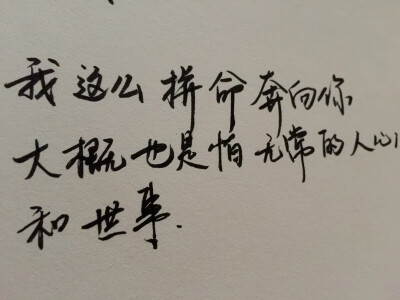 我这么拼命奔向你
大概也是怕无常的人心
和世事.